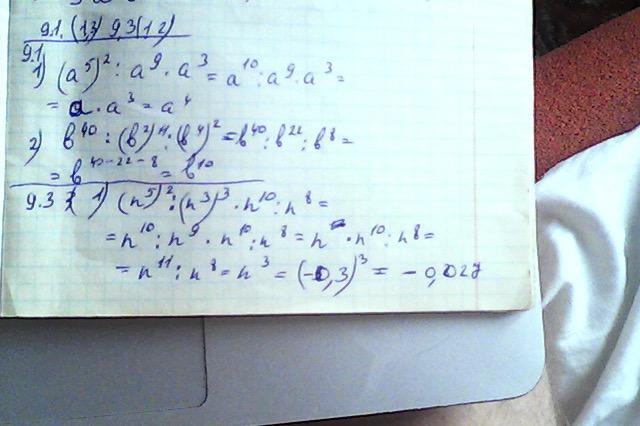 9.1. (1,3) 9.3 (1,2)
9.1
1) (a⁵)² : a⁹ · a³ = a¹⁰ : a⁹ · a³ =
= a · a³ = a⁴
2) b⁴⁰ : (b²)¹¹ : (b⁴)² = b⁴⁰ : b²² : b⁸ =
= b⁴⁰⁻²²⁻⁸ = b¹⁰
9.3 1) (n⁵)² : (n³)³ · n¹⁰ : n⁸ =
= n¹⁰ : n⁹ · n¹⁰ : n⁸ = n · n¹⁰ : n⁸ =
= n¹¹ : n⁸ = n³ = (-0,3)³ = -0,027